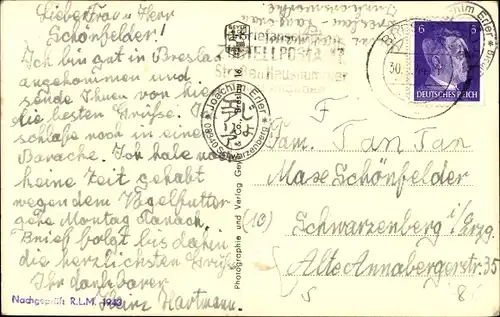 Liebe Frau u Herr
Schönfelder!
Ich bin gut in Breslau
angekommen und
sende Ihnen von hier
die besten Grüße. I
schlafe noch in eine
Barache. Ich habe noch
keine Zeit gehabt
wegen dem Vogelfutter
gehe Montag danach.
Brief folgt bis dahin
die herzlichsten Grüße
Ihr dankbarer
Heinz Hartmann.
Nachgeprüft R.L.M. 1943
Photographie und Verlag
Joachim Erler
Schwarzenberg
BRES
30.
6 6
DEUTSCHES REICH
Joachim Erler
Fam.
Max Schönfelder
(10) Schwarzenberg i/Erzg.
Alte Annabergerstr. 35